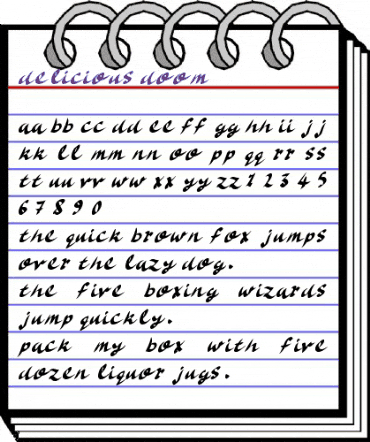 delicious doom
aa bb cc dd ee ff gg hh ii jj
kk ll mm nn oo pp qq rr ss
tt uu vv ww xx yy zz 1 2 3 4 5
6 7 8 9 0
the quick brown fox jumps
over the lazy dog.
the five boxing wizards
jump quickly.
pack my box with five
dozen liquor jugs.